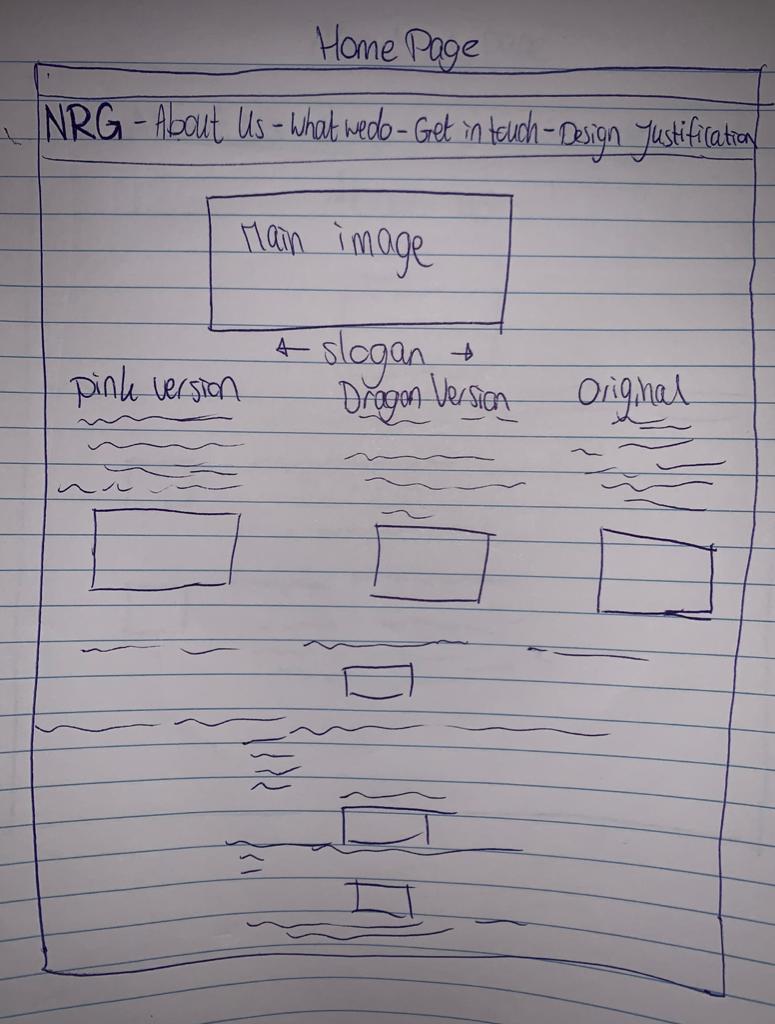 Home Page
NRG - About Us - What we do - Get in touch - Design Justification
Main image
slogan
pink version Dragon Version Original